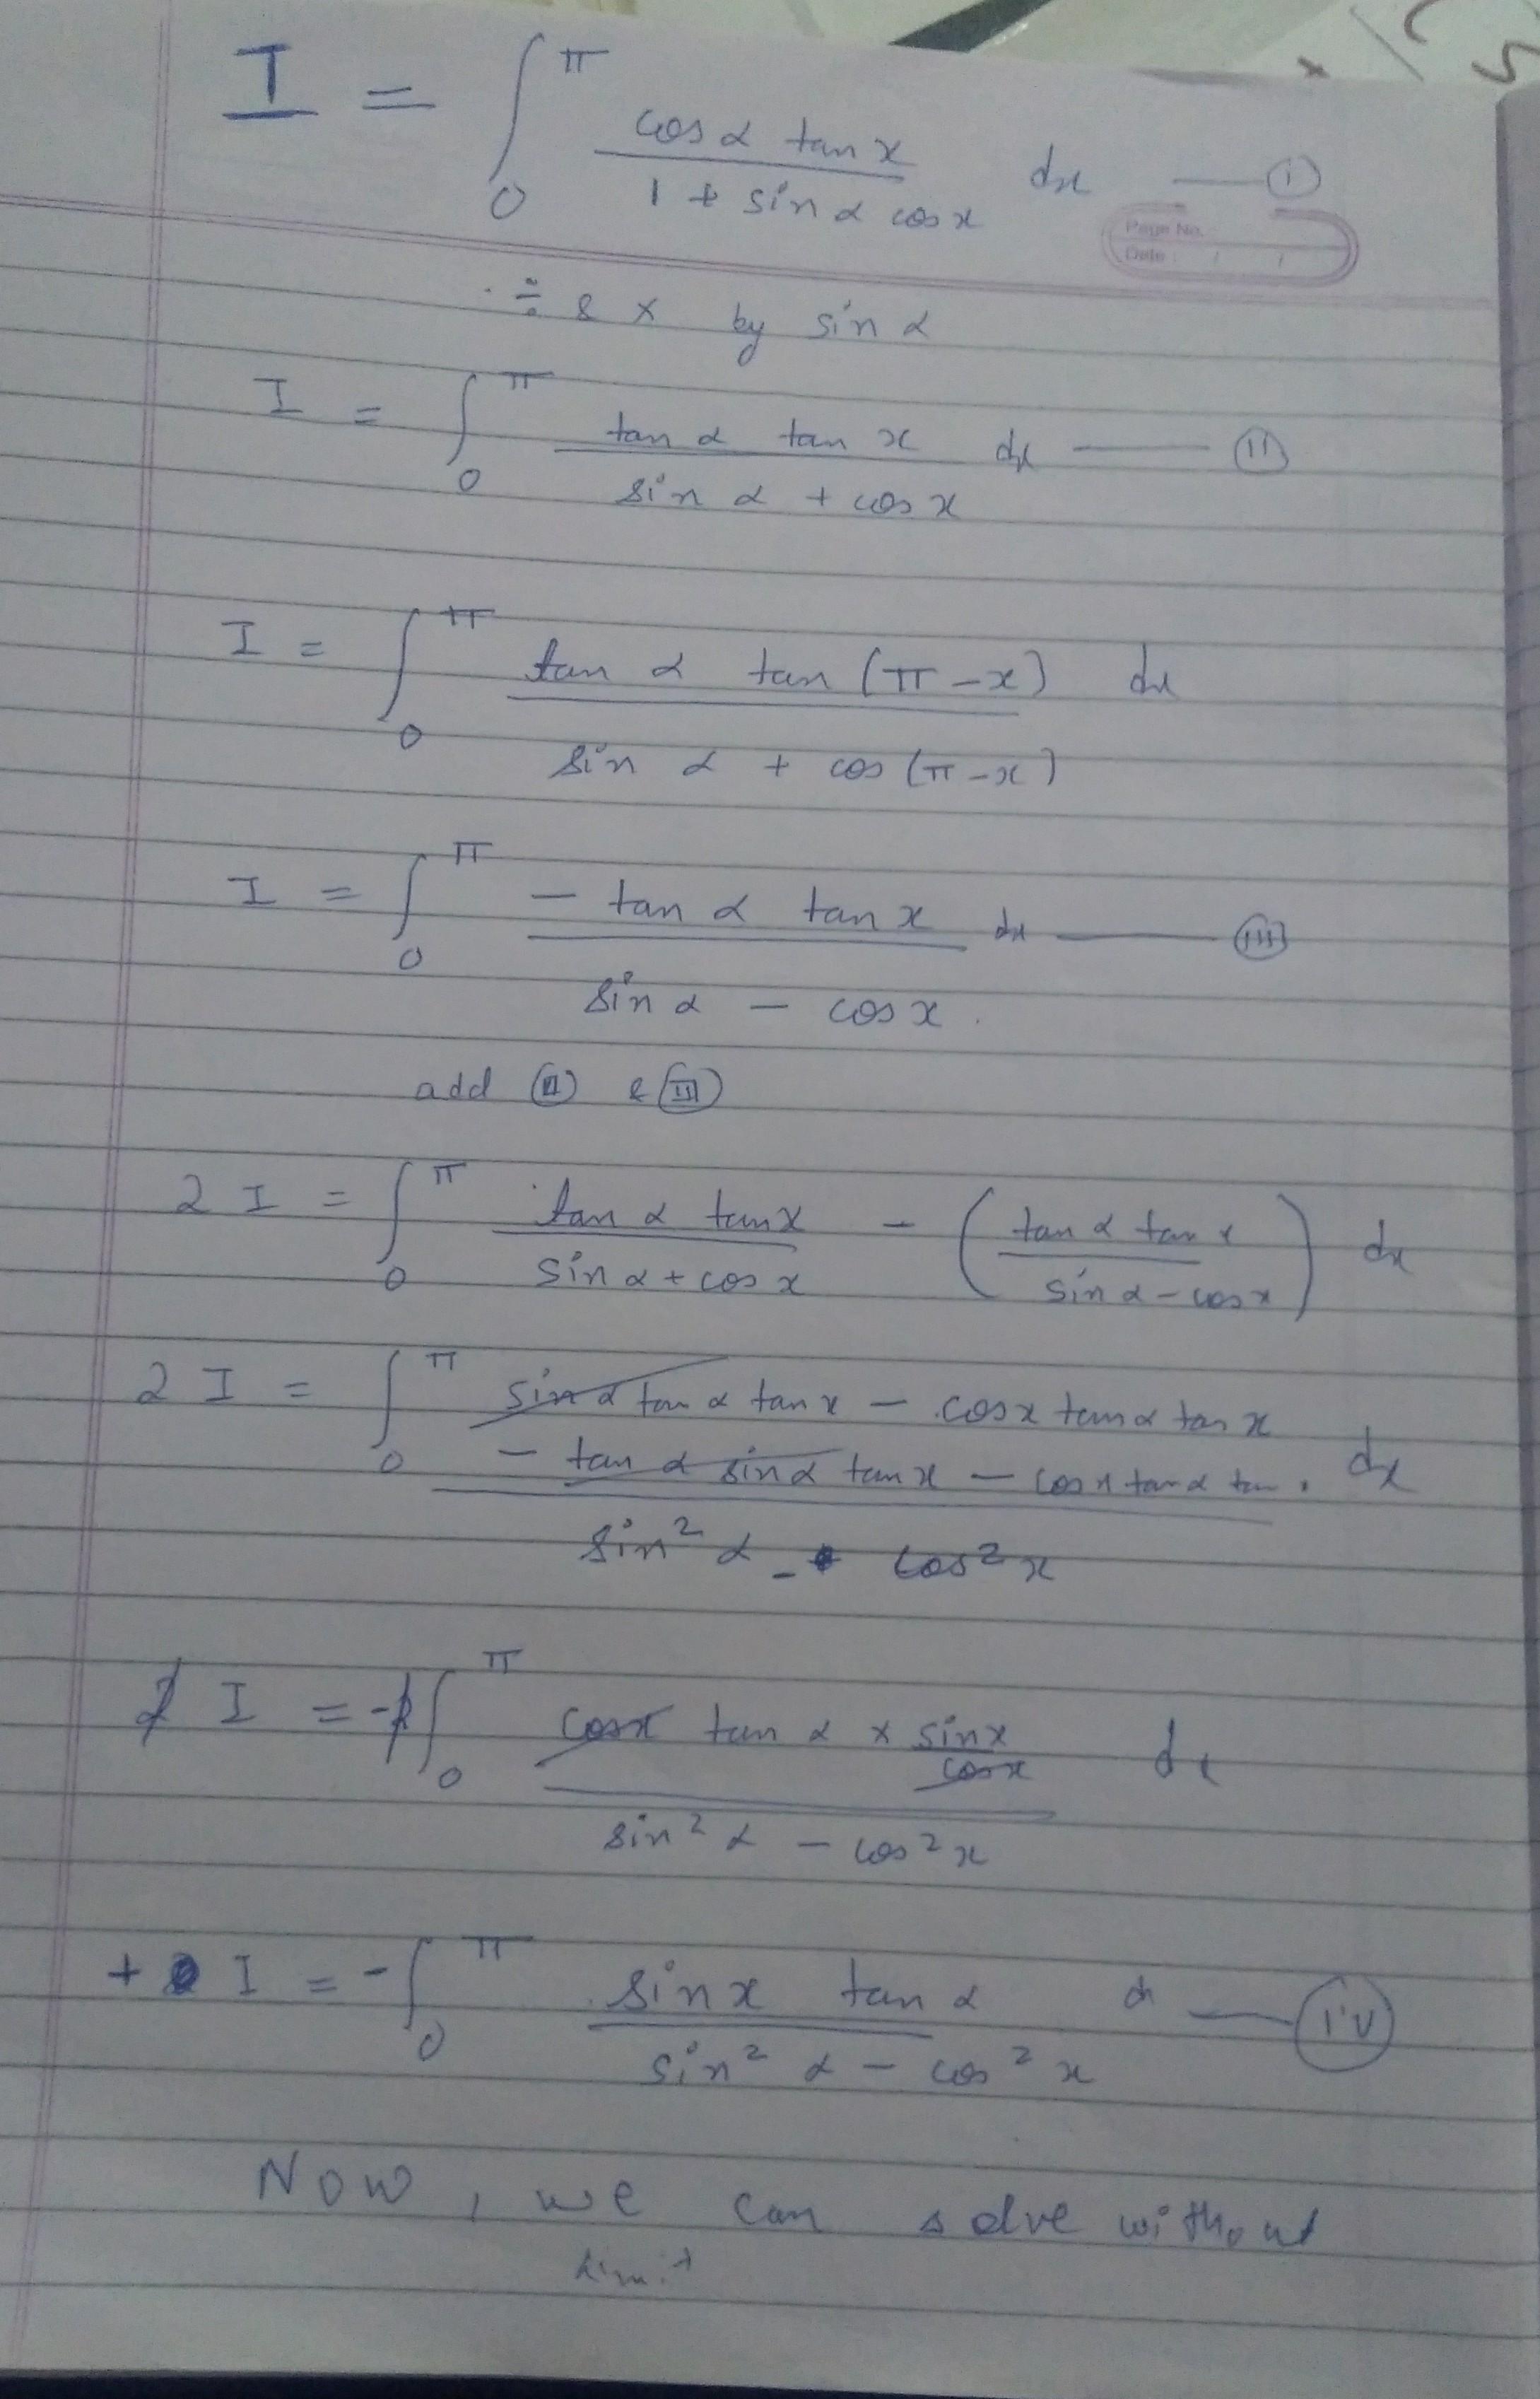 I = ∫₀^π (cos α tan x)/(1 + sin α cos x) dx — (I)
Page No.
Date : / /
÷ & × by sin α
I = ∫₀^π (tan α tan x)/(sin α + cos x) dx — (II)
I = ∫₀^π (tan α tan (π - x))/(sin α + cos (π - x)) dx
I = ∫₀^π (- tan α tan x)/(sin α - cos x) dx — (III)
add (II) & (III)
2 I = ∫₀^π (tan α tan x)/(sin α + cos x) - ((tan α tan x)/(sin α - cos x)) dx
2 I = ∫₀^π (sin α tan α tan x - cos x tan α tan x - tan α sin α tan x - cos x tan α tan)/(sin² α - cos² x) dx
2 I = -2 ∫₀^π (cos x tan α × sin x/cos x)/(sin² α - cos² x) dx
+ I = - ∫₀^π (sin x tan α)/(sin² α - cos² x) d — (iv)
Now, we can solve without
limit